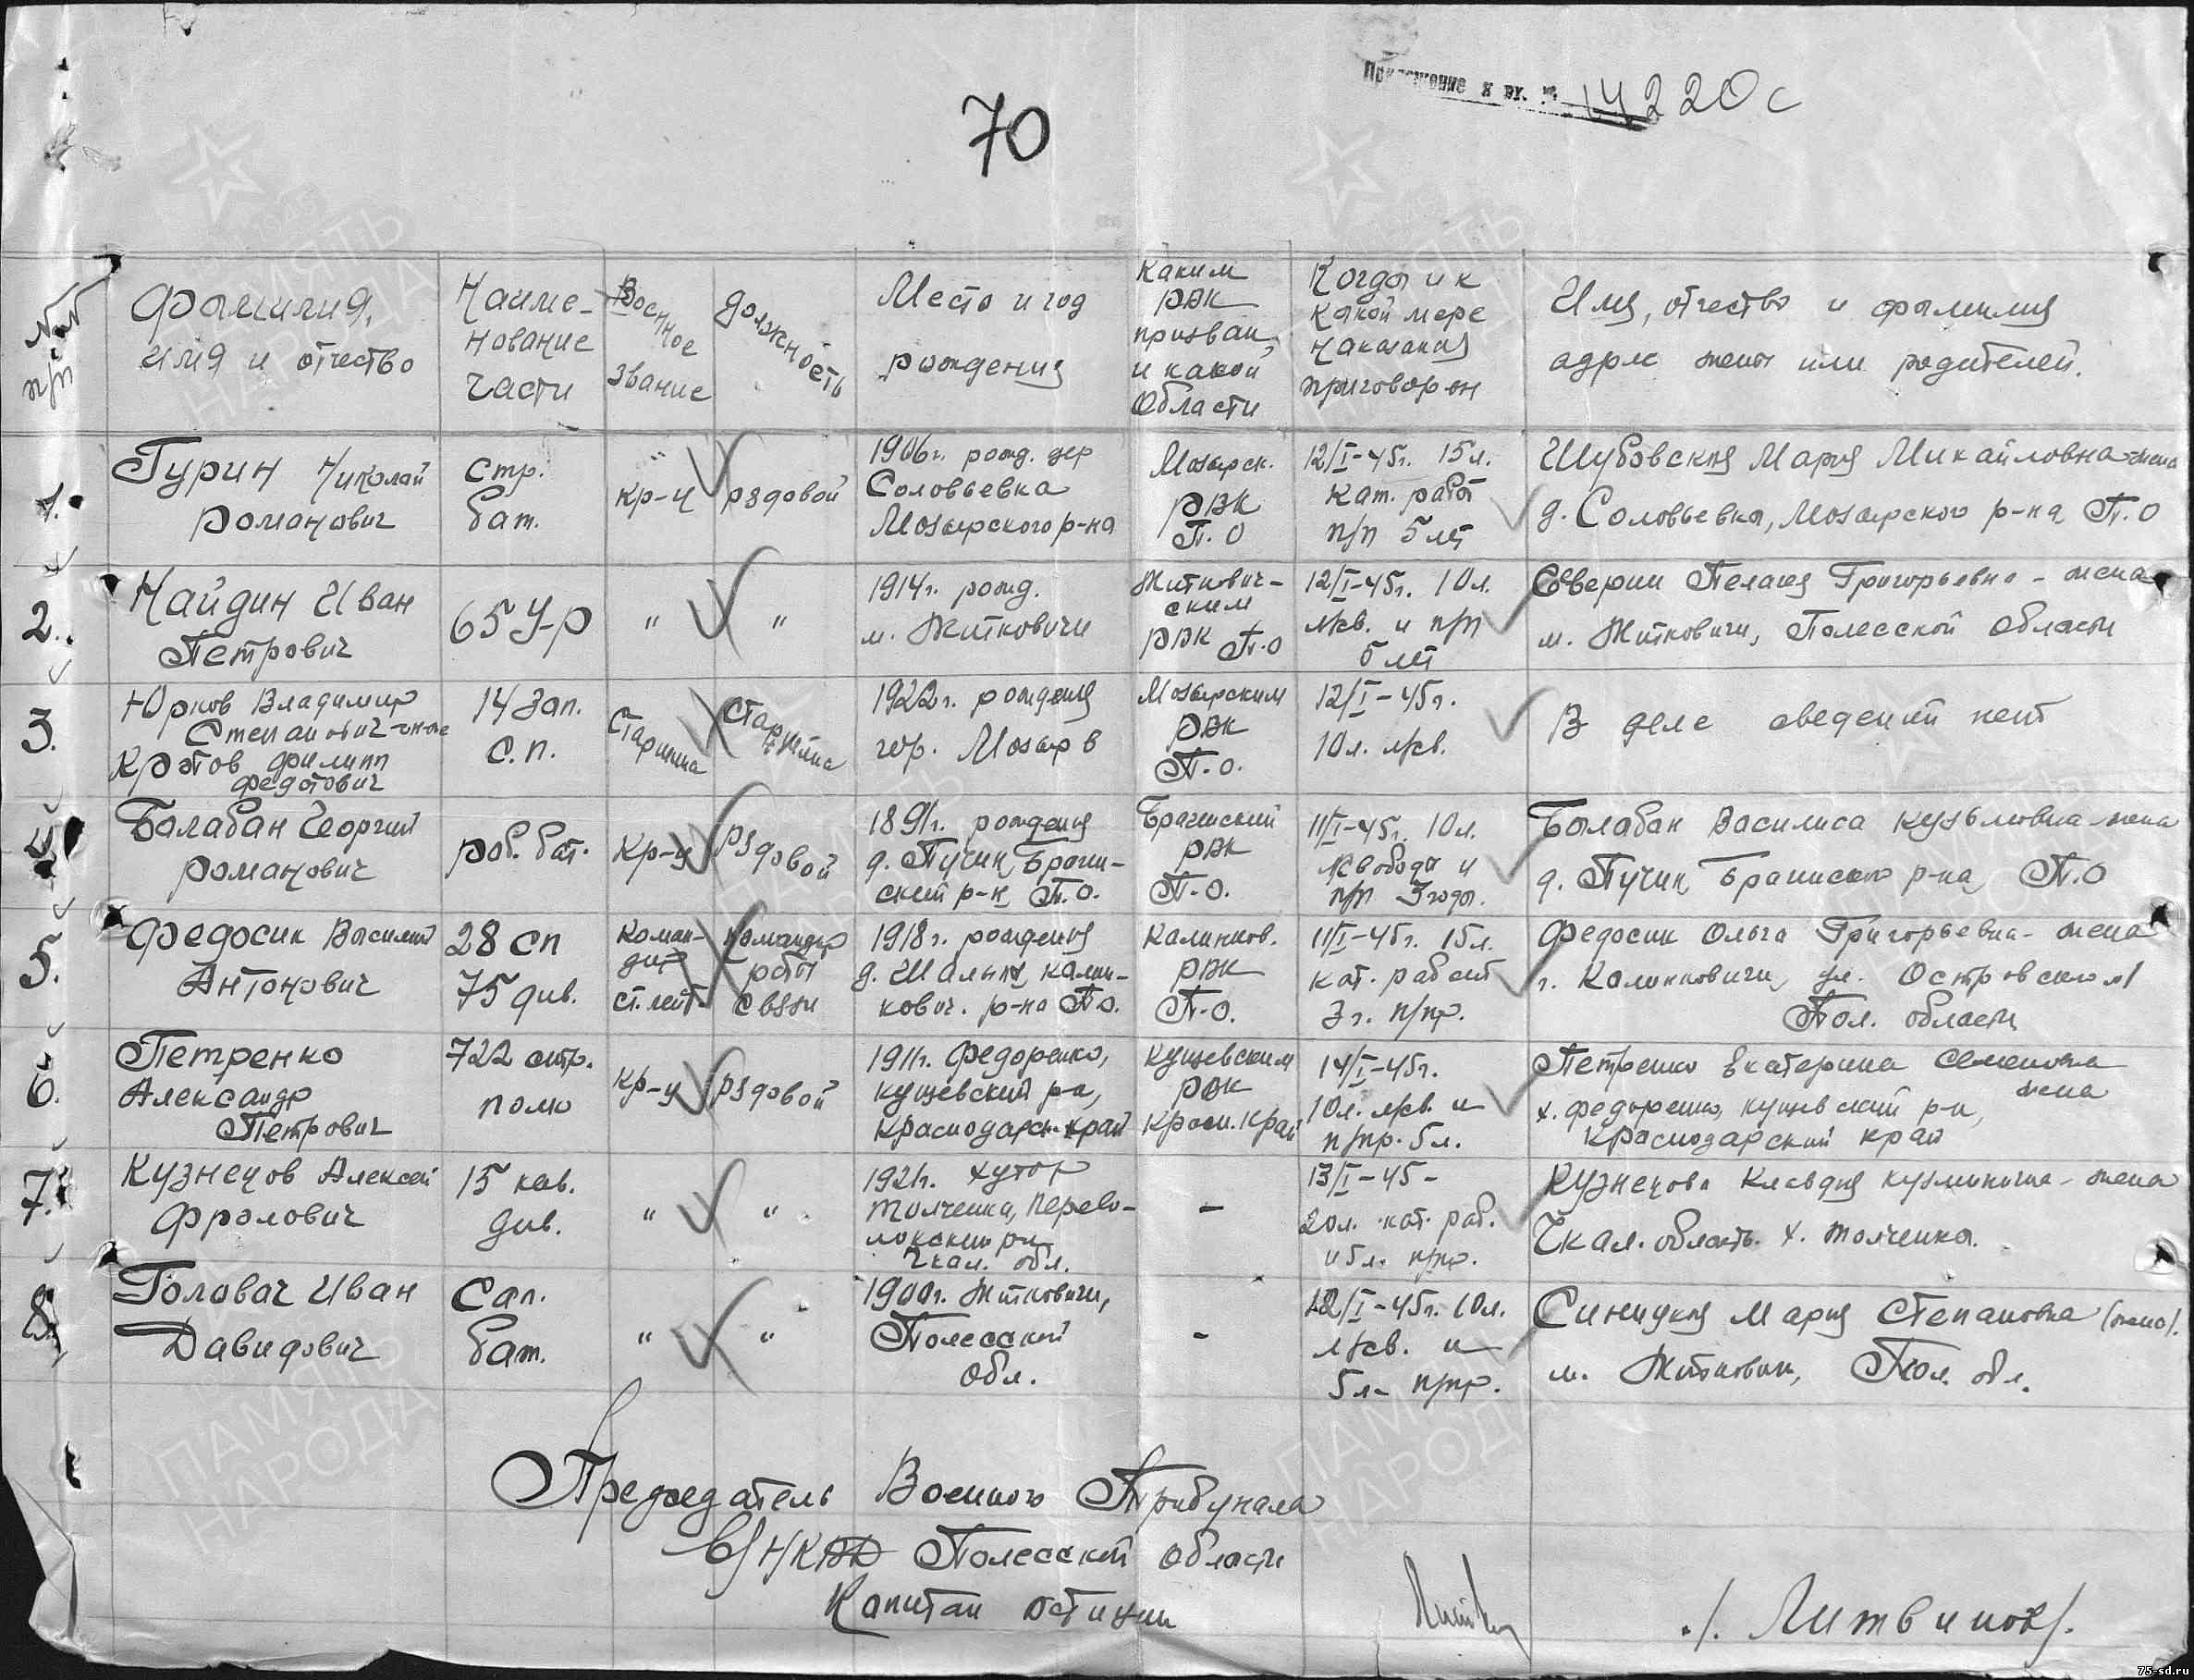 Приложение к вх. № 14220с
70
№№ п/п
Фамилия,
имя и отчество
Наиме-
нование
части
Военное
звание
должность
Место и год
рождения
Каким
РВК
призван,
и какой
области
Когда и к
какой мере
наказания
приговорен
Имя, отчество и фамилия
адрес жены или родителей.
1.
Гурин Николай
Романович
Стр.
бат.
кр-ц
рядовой
1906г. рожд. дер
Соловьевка
Мозырского р-на
Мозырск.
РВК
П.О
12/I-45г. 15л.
кат. работ
п/п 5 лет
Шубовская Мария Михайловна-жена
д. Соловьевка, Мозырского р-на П.О
2.
Найдин Иван
Петрович
65 У-Р
"
"
1914г. рожд.
м. Житковичи
Житкович-
ским
РВК П.О
12/I-45г. 10л.
л/св. и п/п
5 лет
Северин Пелагея Григорьевна - жена
м. Житковичи, Полесской области
3.
Юрков Владимир
Степанович-он-же
Кротов Филипп
Федотович
14 зап.
с.п.
Старшина
Старшина
1922г. рождения
гор. Мозырь
Мозырским
РВК
П.О.
12/I-45г.
10л. л/св.
В деле сведений нет
4.
Балабан Георгий
Романович
раб. бат.
Кр-ц
Рядовой
1891г. рождения
д. Пучин, Браги-
ский р-н П.О.
Брагинский
РВК
П.О.
11/I-45г. 10л.
л/свободы и
п/п 3 года.
Балабан Василиса Кузьмовна-жена
д. Пучин Брагинского р-на П.О
5.
Федосик Василий
Антонович
28 сп
75 див.
Коман-
дир
ст. лейт
Командир
роты
связи
1918г. рождения
д. Шалыпы, Калин-
кович. р-на П.О.
Калинков.
РВК
П.О.
11/I-45г. 15л.
кат. работ
3г. п/пр.
Федосик Ольга Григорьевна - жена
г. Калинковичи, ул. Островского
Пол. области
6.
Петренко
Александр
Петрович
722 стр.
полк
Кр-ц
Рядовой
1911г. Федоренко,
Кущевский р-н,
Краснодарск. край
Кущевским
РВК
Красн. край
14/I-45г.
10л. л/св. и
п/пр. 5л.
Петренко Екатерина Семеновна
жена
х. Федоренко, Кущевский р-н,
Краснодарский край
7.
Кузнецов Алексей
Фролович
15 кав.
див.
"
"
1921г. хутор
Толченка, Перево-
локский р-н
Чкал. обл.
-
13/I-45-
20л. кат. раб.
и 5л. п/пр.
Кузнецова Клавдия Кузминична - жена
Чкал. область. х. Толченка.
8.
Головач Иван
Давидович
Сап.
бат.
"
"
1900г. Житковичи,
Полесской
Обл.
-
12/I-45г. 10л.
л/св. и
5л. п/пр.
Синицкая Мария Степановна (жена).
м. Житковичи, Пол. обл.
Председатель Военного Трибунала
В/НКВД Полесской области
Капитан юстиции
/Литвинов/.
ПАМЯТЬ
НАРОДА
75-sd.ru